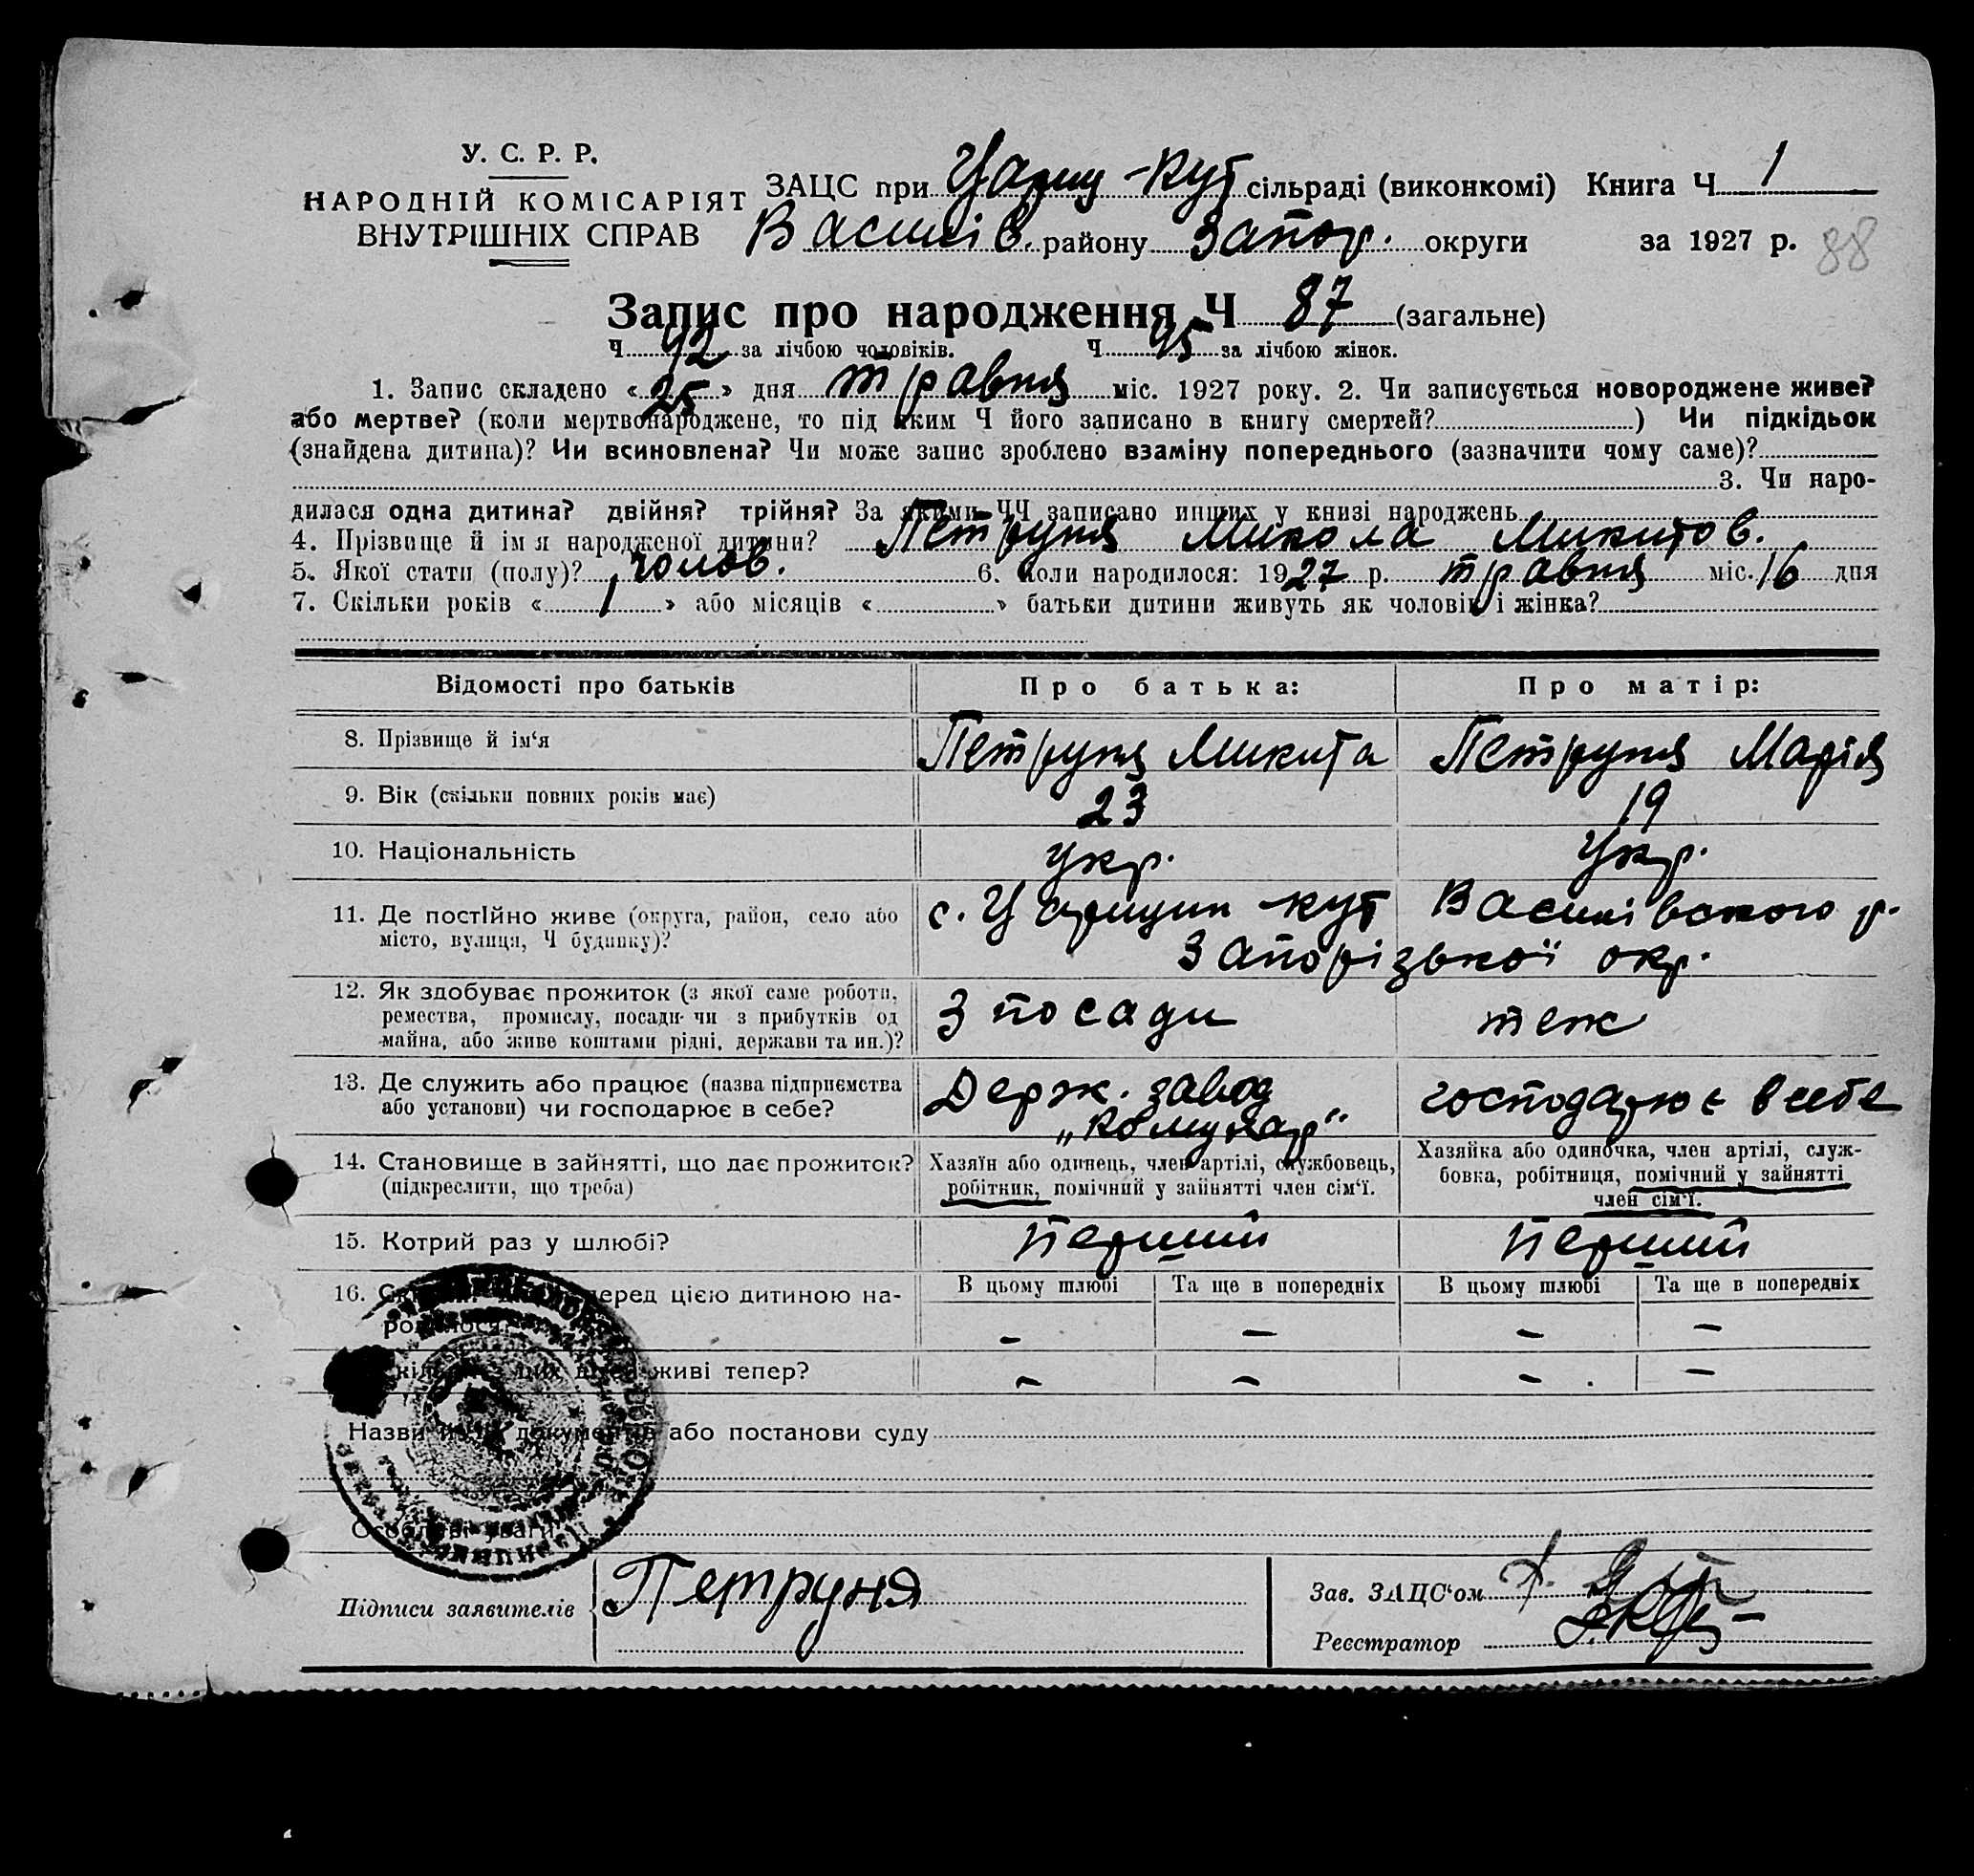 У. С. Р. Р.
НАРОДНІЙ КОМІСАРІЯТ
ВНУТРІШНІХ СПРАВ
ЗАЦС при Цариц-Кут сільраді (виконкомі) Книга Ч 1
Василів. району Запор. округи за 1927 р. 88
Запис про народження Ч 87 (загальне)
Ч 42 за лічбою чоловіків. Ч 45 за лічбою жінок.
1. Запис складено «25» дня травня міс. 1927 року. 2. Чи записується новороджене живе?
або мертве? (коли мертвонароджене, то під яким Ч його записано в книгу смертей?) Чи підкідьок
(знайдена дитина)? Чи всиновлена? Чи може запис зроблено взаміну попереднього (зазначити чому саме)?
3. Чи наро-
дилася одна дитина? двійня? трійня? За якими ЧЧ записано инших у книзі народжень
4. Прізвище й ім я народженої дитини? Петруня Микола Микитов.
5. Якої стати (полу)? чолов. 6. Коли народилося: 1927 р. травня міс. 16 дня
7. Скільки років «1» або місяців « » батьки дитини живуть як чоловік і жінка?
Відомості про батьків Про батька: Про матір:
8. Прізвище й ім‘я Петруня Микита Петруня Марія
9. Вік (скільки повних років має) 23 19
10. Національність укр. Укр.
11. Де постійно живе (округа, район, село або
місто, вулиця, Ч будинку)?
с. Царицин кут Василівського р.
Запорізької окр.
12. Як здобуває прожиток (з якої саме роботи,
ремества, промислу, посади- чи з прибутків од
майна, або живе коштами рідні, держави та ин.)?
З посади теж
13. Де служить або працює (назва підприємства
або установи) чи господарює в себе?
Держ. завод
„Комунар“
господарює в себе
14. Становище в зайнятті, що дає прожиток?
(підкреслити, що треба)
Хазяїн або одинець, член артілі, службовець,
робітник, помічний у зайнятті член сім‘ї.
Хазяйка або одиночка, член артілі, служ-
бовка, робітниця, помічний у зайнятті
член сім‘ї.
15. Котрий раз у шлюбі? Перший Перший
16. перед цією дитиною на-
родилося?
В цьому шлюбі Та ще в попередніх В цьому шлюбі Та ще в попередніх
– – – –
живі тепер? – – – –
Назви документів або постанови суду
Особливі уваги
Підписи заявителів Петруня
Зав. ЗАЦС‘ом
Реєстратор